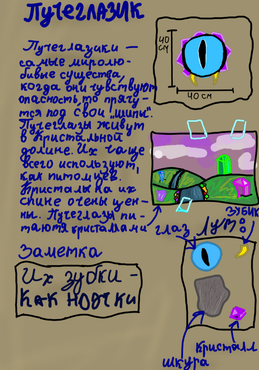 Пучеглазик
Пучеглазики —
самые миролю-
бивые существа,
когда они чувствуют
опасность то пряч-
тся под свои "шипы".
Пучеглазы живут
в Кристальной
долине. Их чаще
всего используют,
как питомцев.
Кристаллы на их
спине очень цен-
ни. Пучеглазы пи-
таются кристаллами
40
см
40 см
Заметка
Их зубки -
как ноочки
ЛУТ:
глаз
зубик
кристалл
шкура